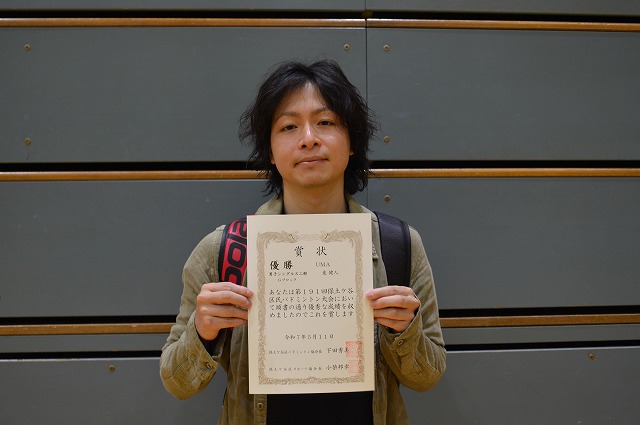 賞状
優勝 UMA
男子シングルス二部
Bブロック
あなたは第191回保土ケ谷
区民バドミントン大会におい
て頭書の通り優秀な成績を収
めましたのでこれを賞します
令和7年5月11日
保土ケ谷区バドミントン協会長 下田秀美
保土ケ谷区スポーツ協会長